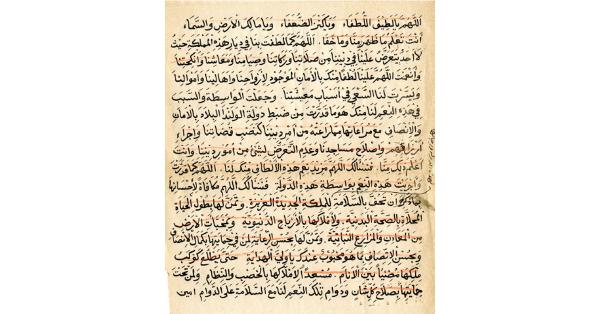 اللهم يا لطيف اللطفاء ويا كنز الضعفاء ويا مالك الارض والسماء
انت تعلم ما ظهر منا وما خفا اللهم كما لطفت بنا في ديار هذه المملكة حيث
لا احد يتعرض علينا في ديننا من صلاتنا وزكاتنا وصيامنا ومعاشنا وانكحتنا
وانعمت اللهم علينا لطفا منك بالأمان الموجود لارواحنا واهالينا واموالنا
ويسرت لنا السعي في اسباب معيشتنا وجعلت الواسطة والسبب
في هذه النعم لنا منك هو ما قدرت من ضبط دولة الولندا البلاد بالأمان
والانصاف مع مراعاتها من امر ديننا كنصب قضاتنا واجراء
ارزاقهم واصلاح مساجدنا وعدم التعرض لشئ من امور ديننا وانت
اعلم بذلك منا فنسألك اللهم مزيد نعم هذه الالطاف منك لنا اللهم كما قدرت
واجريت هذه النعم بواسطة هذه الدولة فنسألك اللهم مكافاة لاحسانها
ان تحف بالسلامة للملكة الجديدة العزيزة وتمن لها بطول الحياة
المحلاة بالصحة البدنية ولأفلاكها بالأرباح الدنيوية وبمخبات الارض
من المعادن والمزارع النباتية وتمن لها بحسن الرعاية لمن في حمايتها بكمال الانصاف
وبحسن الانصاف بما هو محبوب عندك يا ولي الهداية حتى يطلع كوكب
ملكها مضيئا بين الانام مسعدا لافلاكها بالخصب والنظام ولمن تحت
حمايتها بصلاح كل شان ودوام تلك النعم لنا مع السلامة على الدوام امين